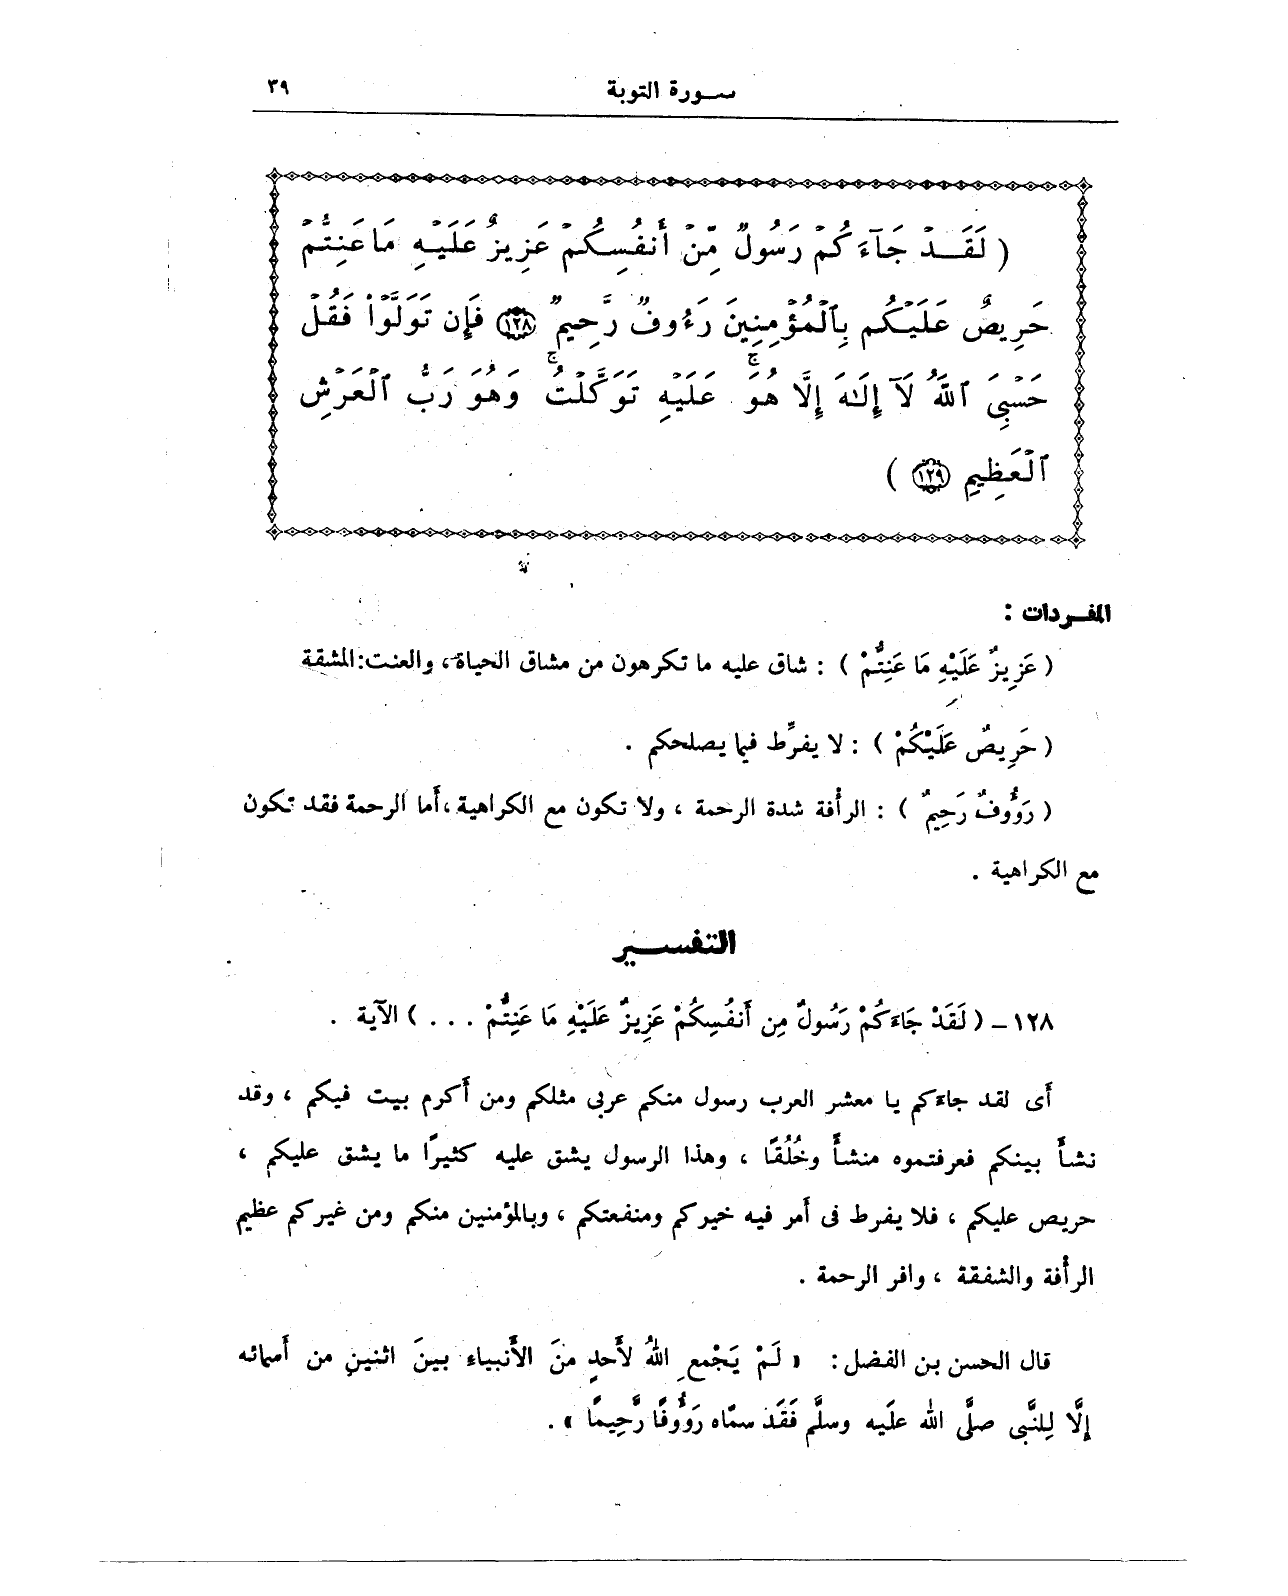 سورة التوبة
٣٩
( لَقَدْ جَآءَكُمْ رَسُولٌ مِّنْ أَنفُسِكُمْ عَزِيزٌ عَلَيْهِ مَا عَنِتُّمْ
حَرِيصٌ عَلَيْكُم بِٱلْمُؤْمِنِينَ رَءُوفٌ رَّحِيمٌ ١٢٨ فَإِن تَوَلَّوْا۟ فَقُلْ
حَسْبِىَ ٱللَّهُ لَآ إِلَـٰهَ إِلَّا هُوَ ۖ عَلَيْهِ تَوَكَّلْتُ ۖ وَهُوَ رَبُّ ٱلْعَرْشِ
ٱلْعَظِيمِ ١٢٩ )
المفردات :
( عَزِيزٌ عَلَيْهِ مَا عَنِتُّمْ ) : شاق عليه ما تكرهون من مشاق الحياة، والعنت: المشقة
( حَرِيصٌ عَلَيْكُمْ ) : لا يفرِّط فيما يصلحكم .
( رَؤُوفٌ رَحِيمٌ ) : الرأفة شدة الرحمة ، ولا تكون مع الكراهية ، أما الرحمة فقد تكون
مع الكراهية .
التفسير
١٢٨ – ( لَقَدْ جَاءَكُمْ رَسُولٌ مِن أَنفُسِكُمْ عَزِيزٌ عَلَيْهِ مَا عَنِتُّمْ . . . ) الآية .
أى لقد جاءكم يا معشر العرب رسول منكم عربى مثلكم ومن أكرم بيت فيكم ، وقد
نشأ بينكم فعرفتموه منشأً وخُلُقًا ، وهذا الرسول يشق عليه كثيرًا ما يشق عليكم ،
حريص عليكم ، فلا يفرط فى أمر فيه خيركم ومنفعتكم ، وبالمؤمنين منكم ومن غيركم عظيم
الرأفة والشفقة ، وافر الرحمة .
قال الحسن بن الفضل : « لَمْ يَجْمعِ اللهُ لأَحدٍ منَ الأَنبياءِ بينَ اثنينِ من أَسمائه
إِلَّا لِلنَّبى صلَّى الله علَيه وسلَّم فَقَد سمَّاه رَؤُوفًا رَّحِيمًا » .